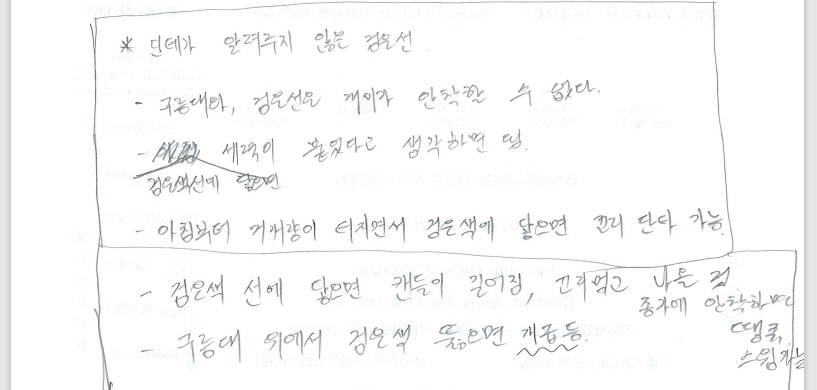 * 단테가 알려주지 않은 검은선.
- 구름대와, 검은선은 개미가 안착할 수 없다.
- 세력이 붙었다고 생각하면 됨.
검은색선에 닿으면
- 아침부터 거래량이 터지면서 검은색에 닿으면 꼬리 단타 가능.
- 검은색 선에 닿으면 캔들이 길어짐, 꼬리먹고 나올 것.
종가에 안착하면
땡큐.
스윙가능
- 구름대 위에서 검은색 뚫으면 개급등.